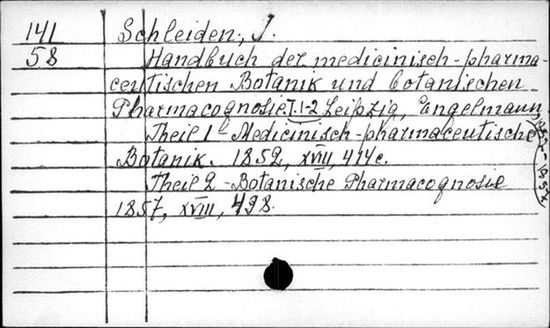 141 Schleiden, J.
58 Handbuch der medicinisch-pharma-
ceutischen Botanik und botanischen
Pharmacognosie T. 1-2 Leipzig, Engelmann,
1852-1857
Theil 1 - Medicinisch-pharmaceutische
Botanik. 1852, XVIII, 414 c.
Theil 2 - Botanische Pharmacognosie
1857, XVIII, 498.